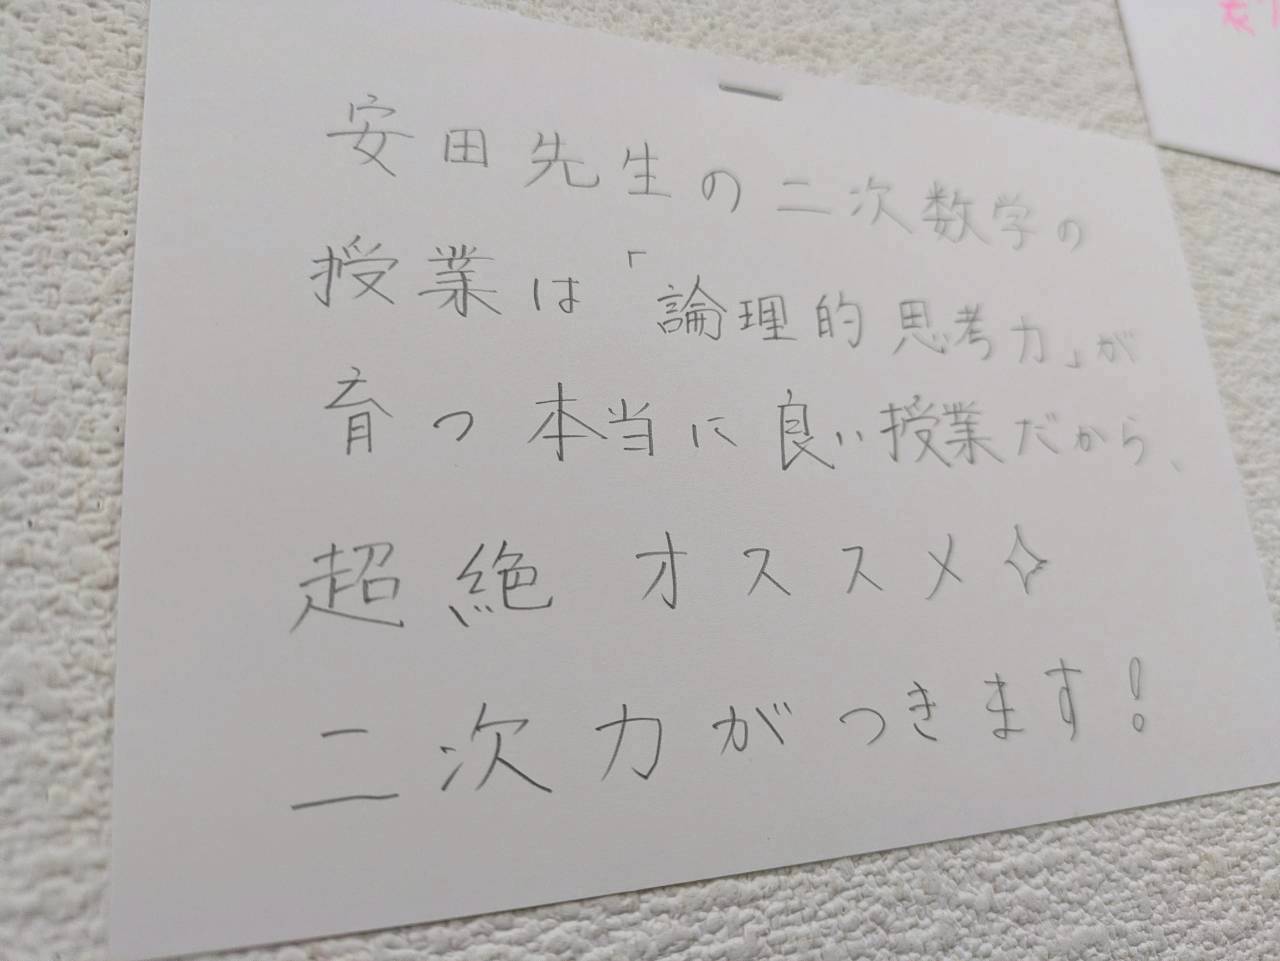 安田先生の二次数学の
授業は「論理的思考力」が
育つ本当に良い授業だから、
超絶オススメ✧
二次力がつきます!